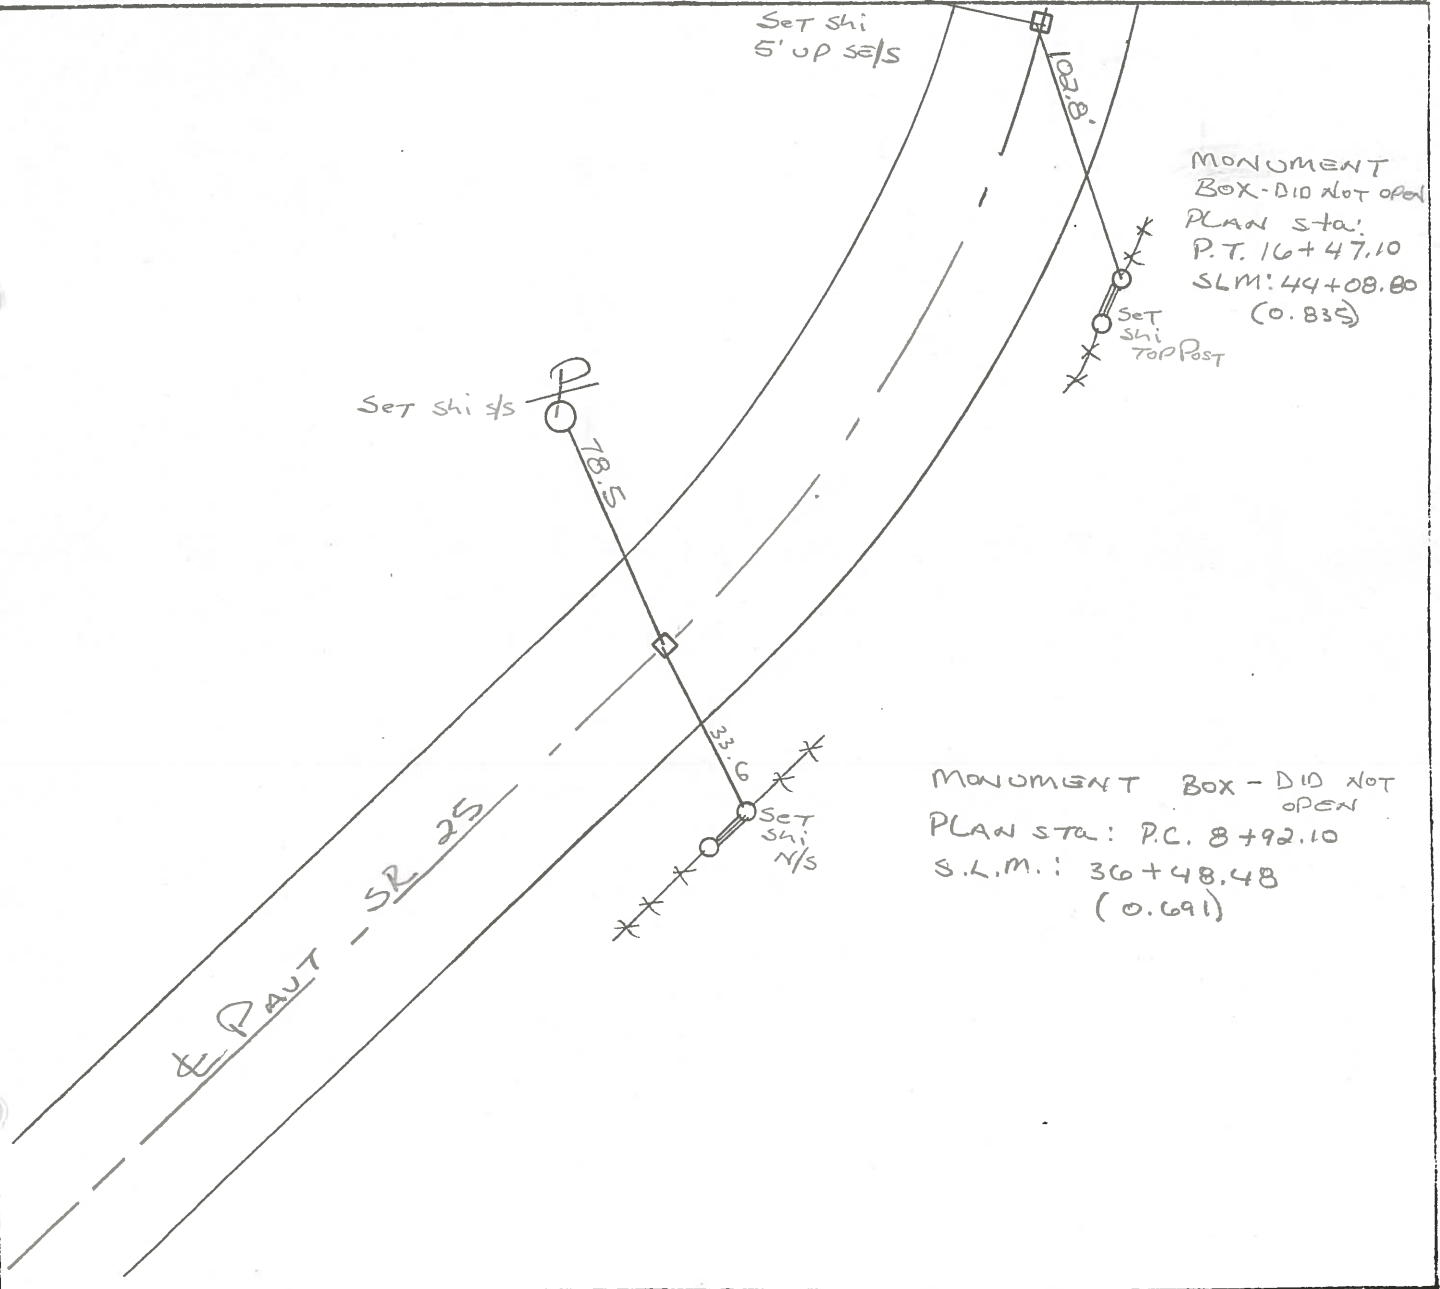 SET Shi
5' UP SE/S
102.8'
MONUMENT
BOX - DID NOT OPEN
PLAN Sta:
P.T. 16+47.10
SLM: 44+08.80
(0.835)
SET
Shi
TOP POST
P
SET Shi S/S
78.5
33.6
SET
Shi
N/S
MONUMENT BOX - DID NOT
OPEN
PLAN STa: P.C. 8+92.10
S.L.M.: 36+48.48
(0.691)
℄ PAVT - SR 25